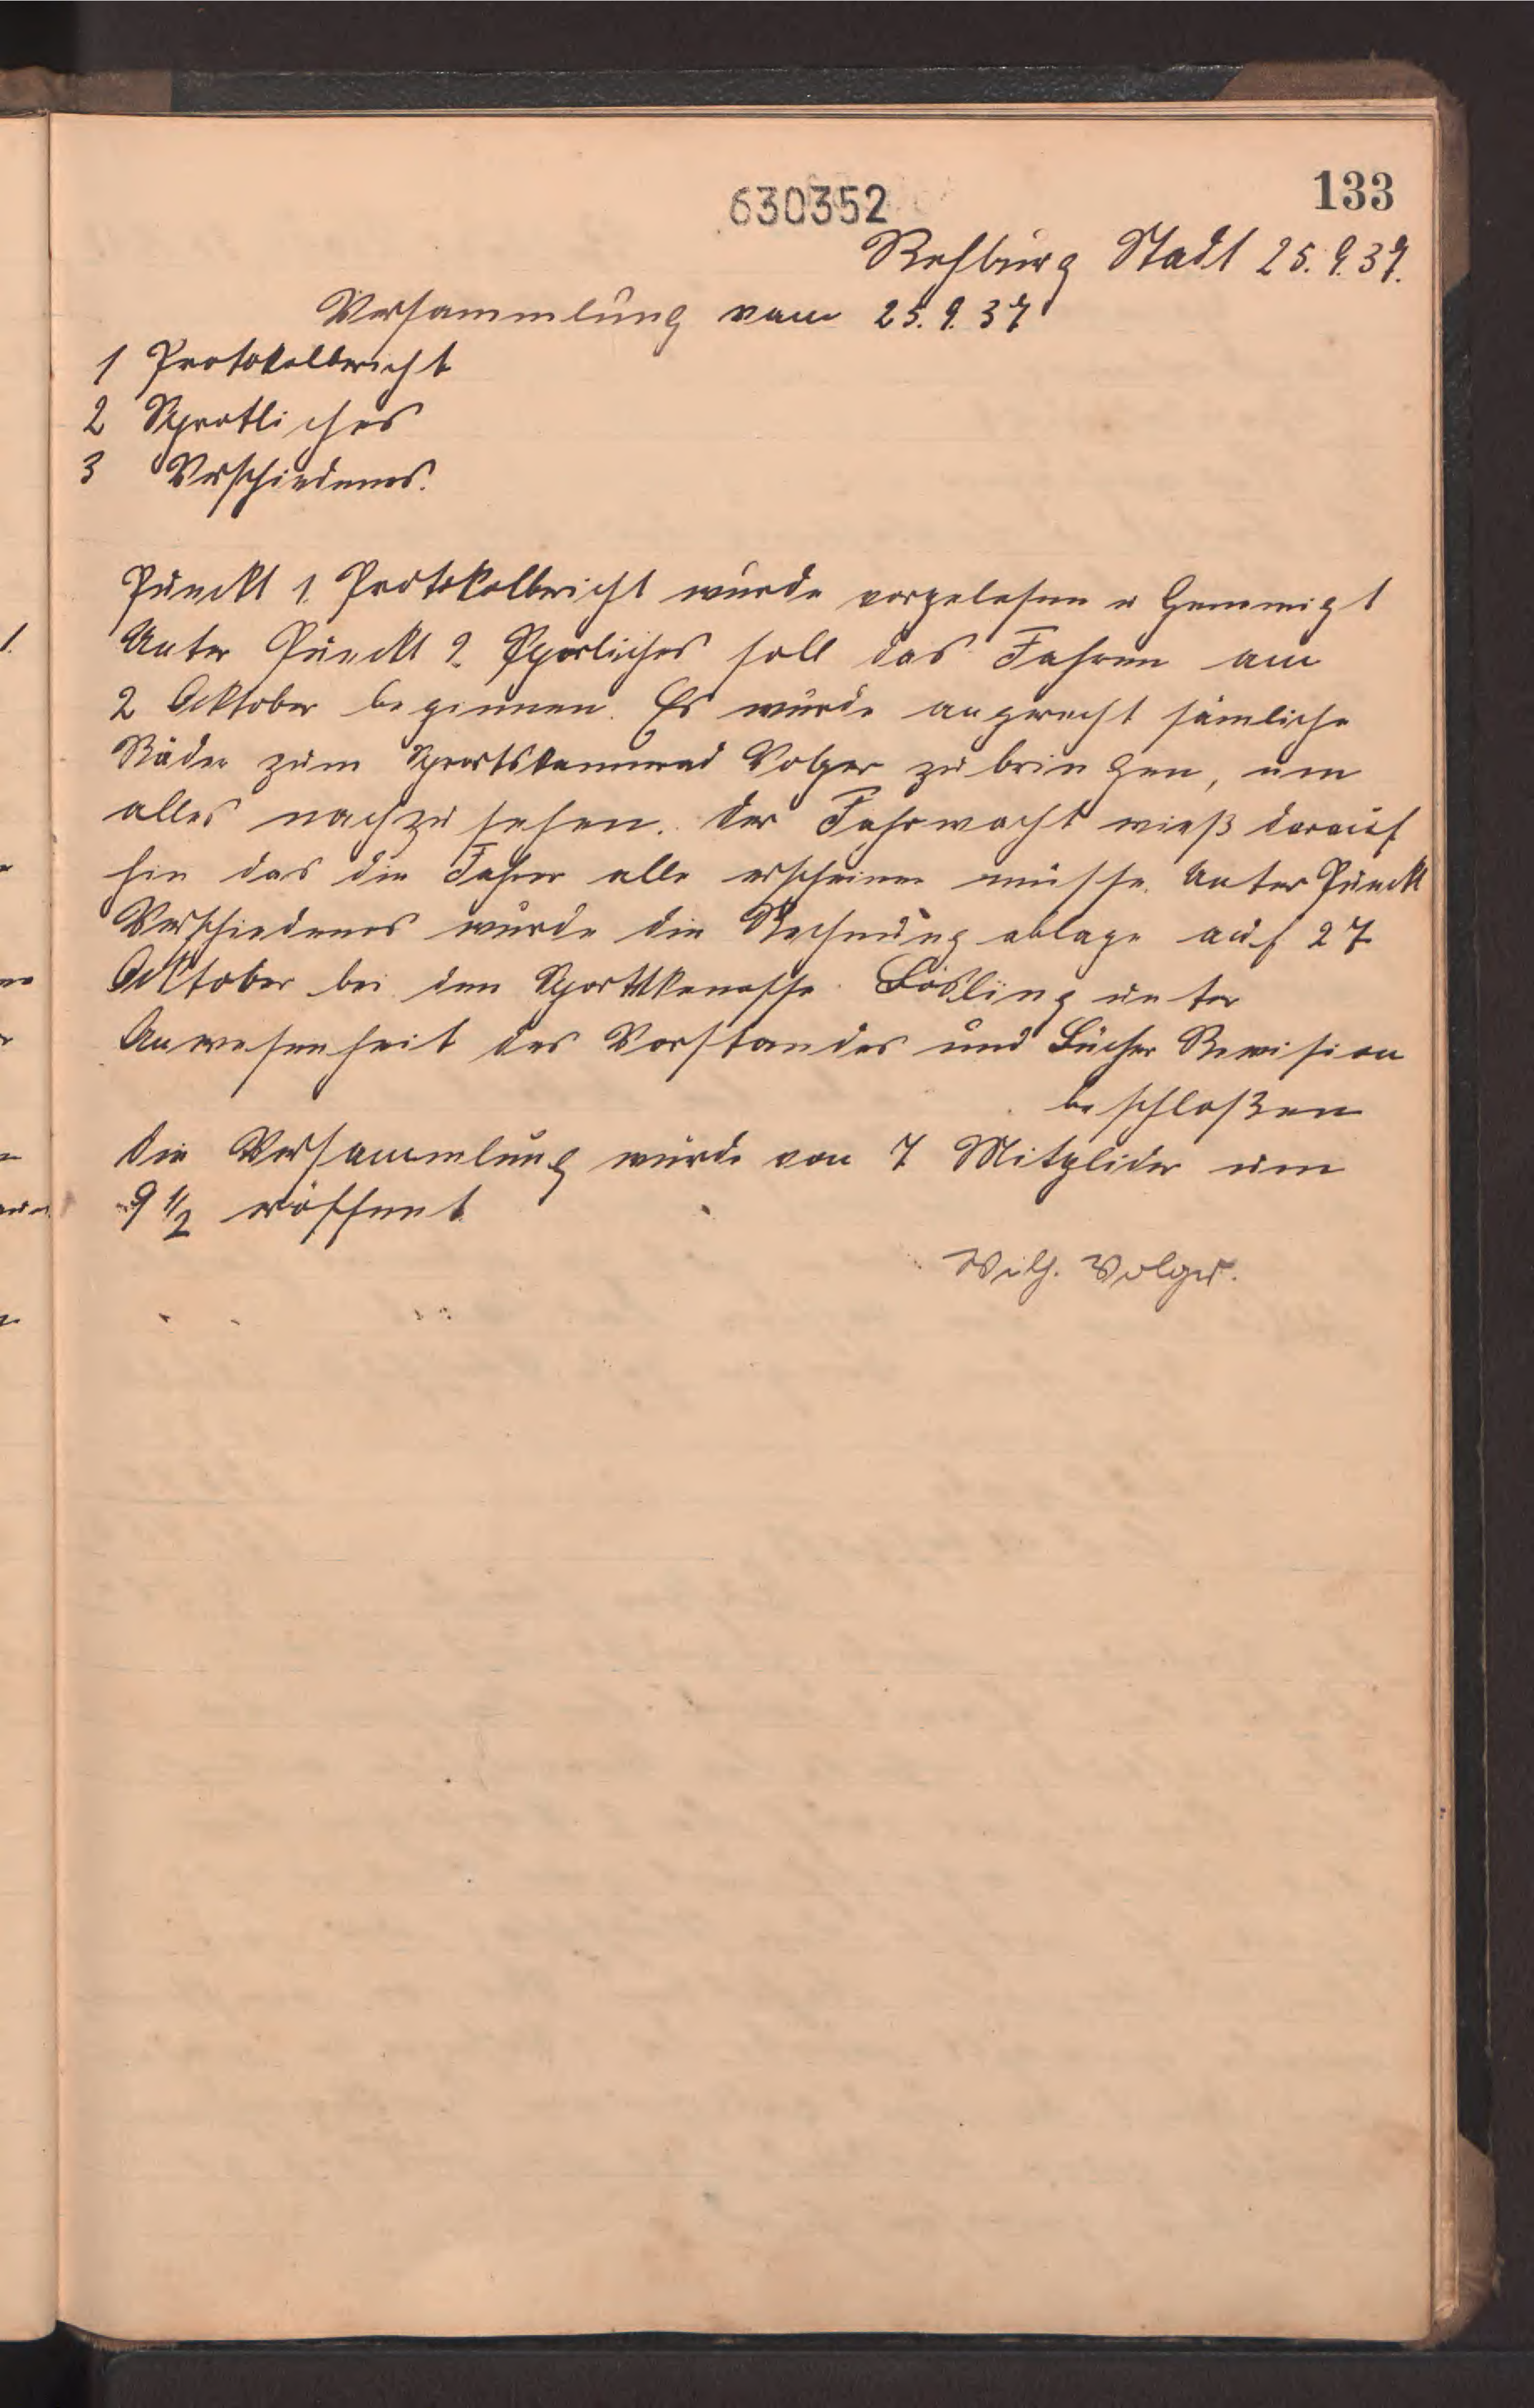 133
630352
Rehburg Stadt 25.9.37.
Versammlung vom 25.9.37
1 Protokolbericht
2 Sprotliches
3 Verschiedenes.
Punckt 1. Protokolbericht wurde vorgelesen u Genemigt
Unter Punckt 2 Sporliches soll das Fahren am
2 Ocktober beginnen. Es wurde angerecht sämliche
Räder zum Sportskammerad Volger zu bringen, um
alles nachzu sehen. der Fahrwacht wieß darauf
hin das die Fahrer alle erscheinen müsse. Unter Punckt
Verschiedenes wurde die Rechnung ablage auf 27
Ocktober bei den unter
Anwesenheit des Vorstandes und Bücher Revision
beschloßen
die Versammlung wurde von 7 Mitglider um
9 1/2 eröffnet
Wilh. Volger.